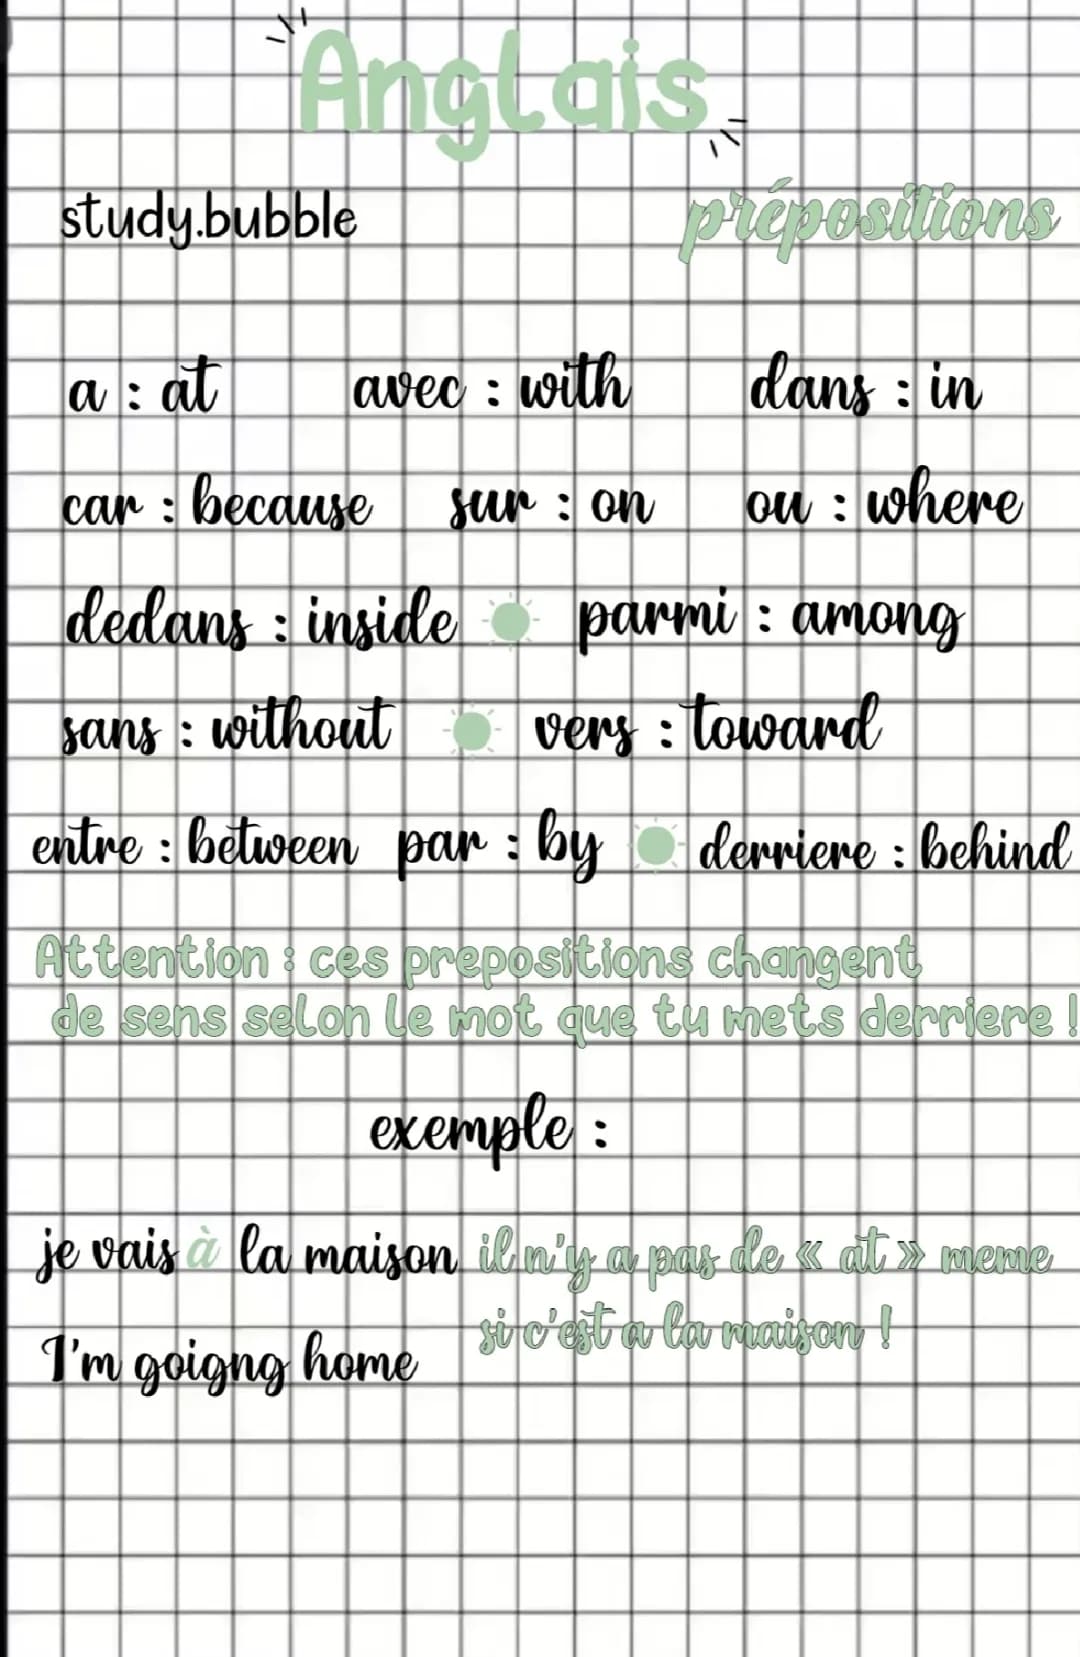 Anglais
study.bubble prépositions
a : at avec : with dans : in
car : because sur : on ou : where
dedans : inside parmi : among
sans : without vers : toward
entre : between par : by derriere : behind
Attention : ces prepositions changent
de sens selon le mot que tu mets derriere !
exemple :
je vais à la maison il n'y a pas de « at » meme
si c'est a la maison !
I'm goigng home